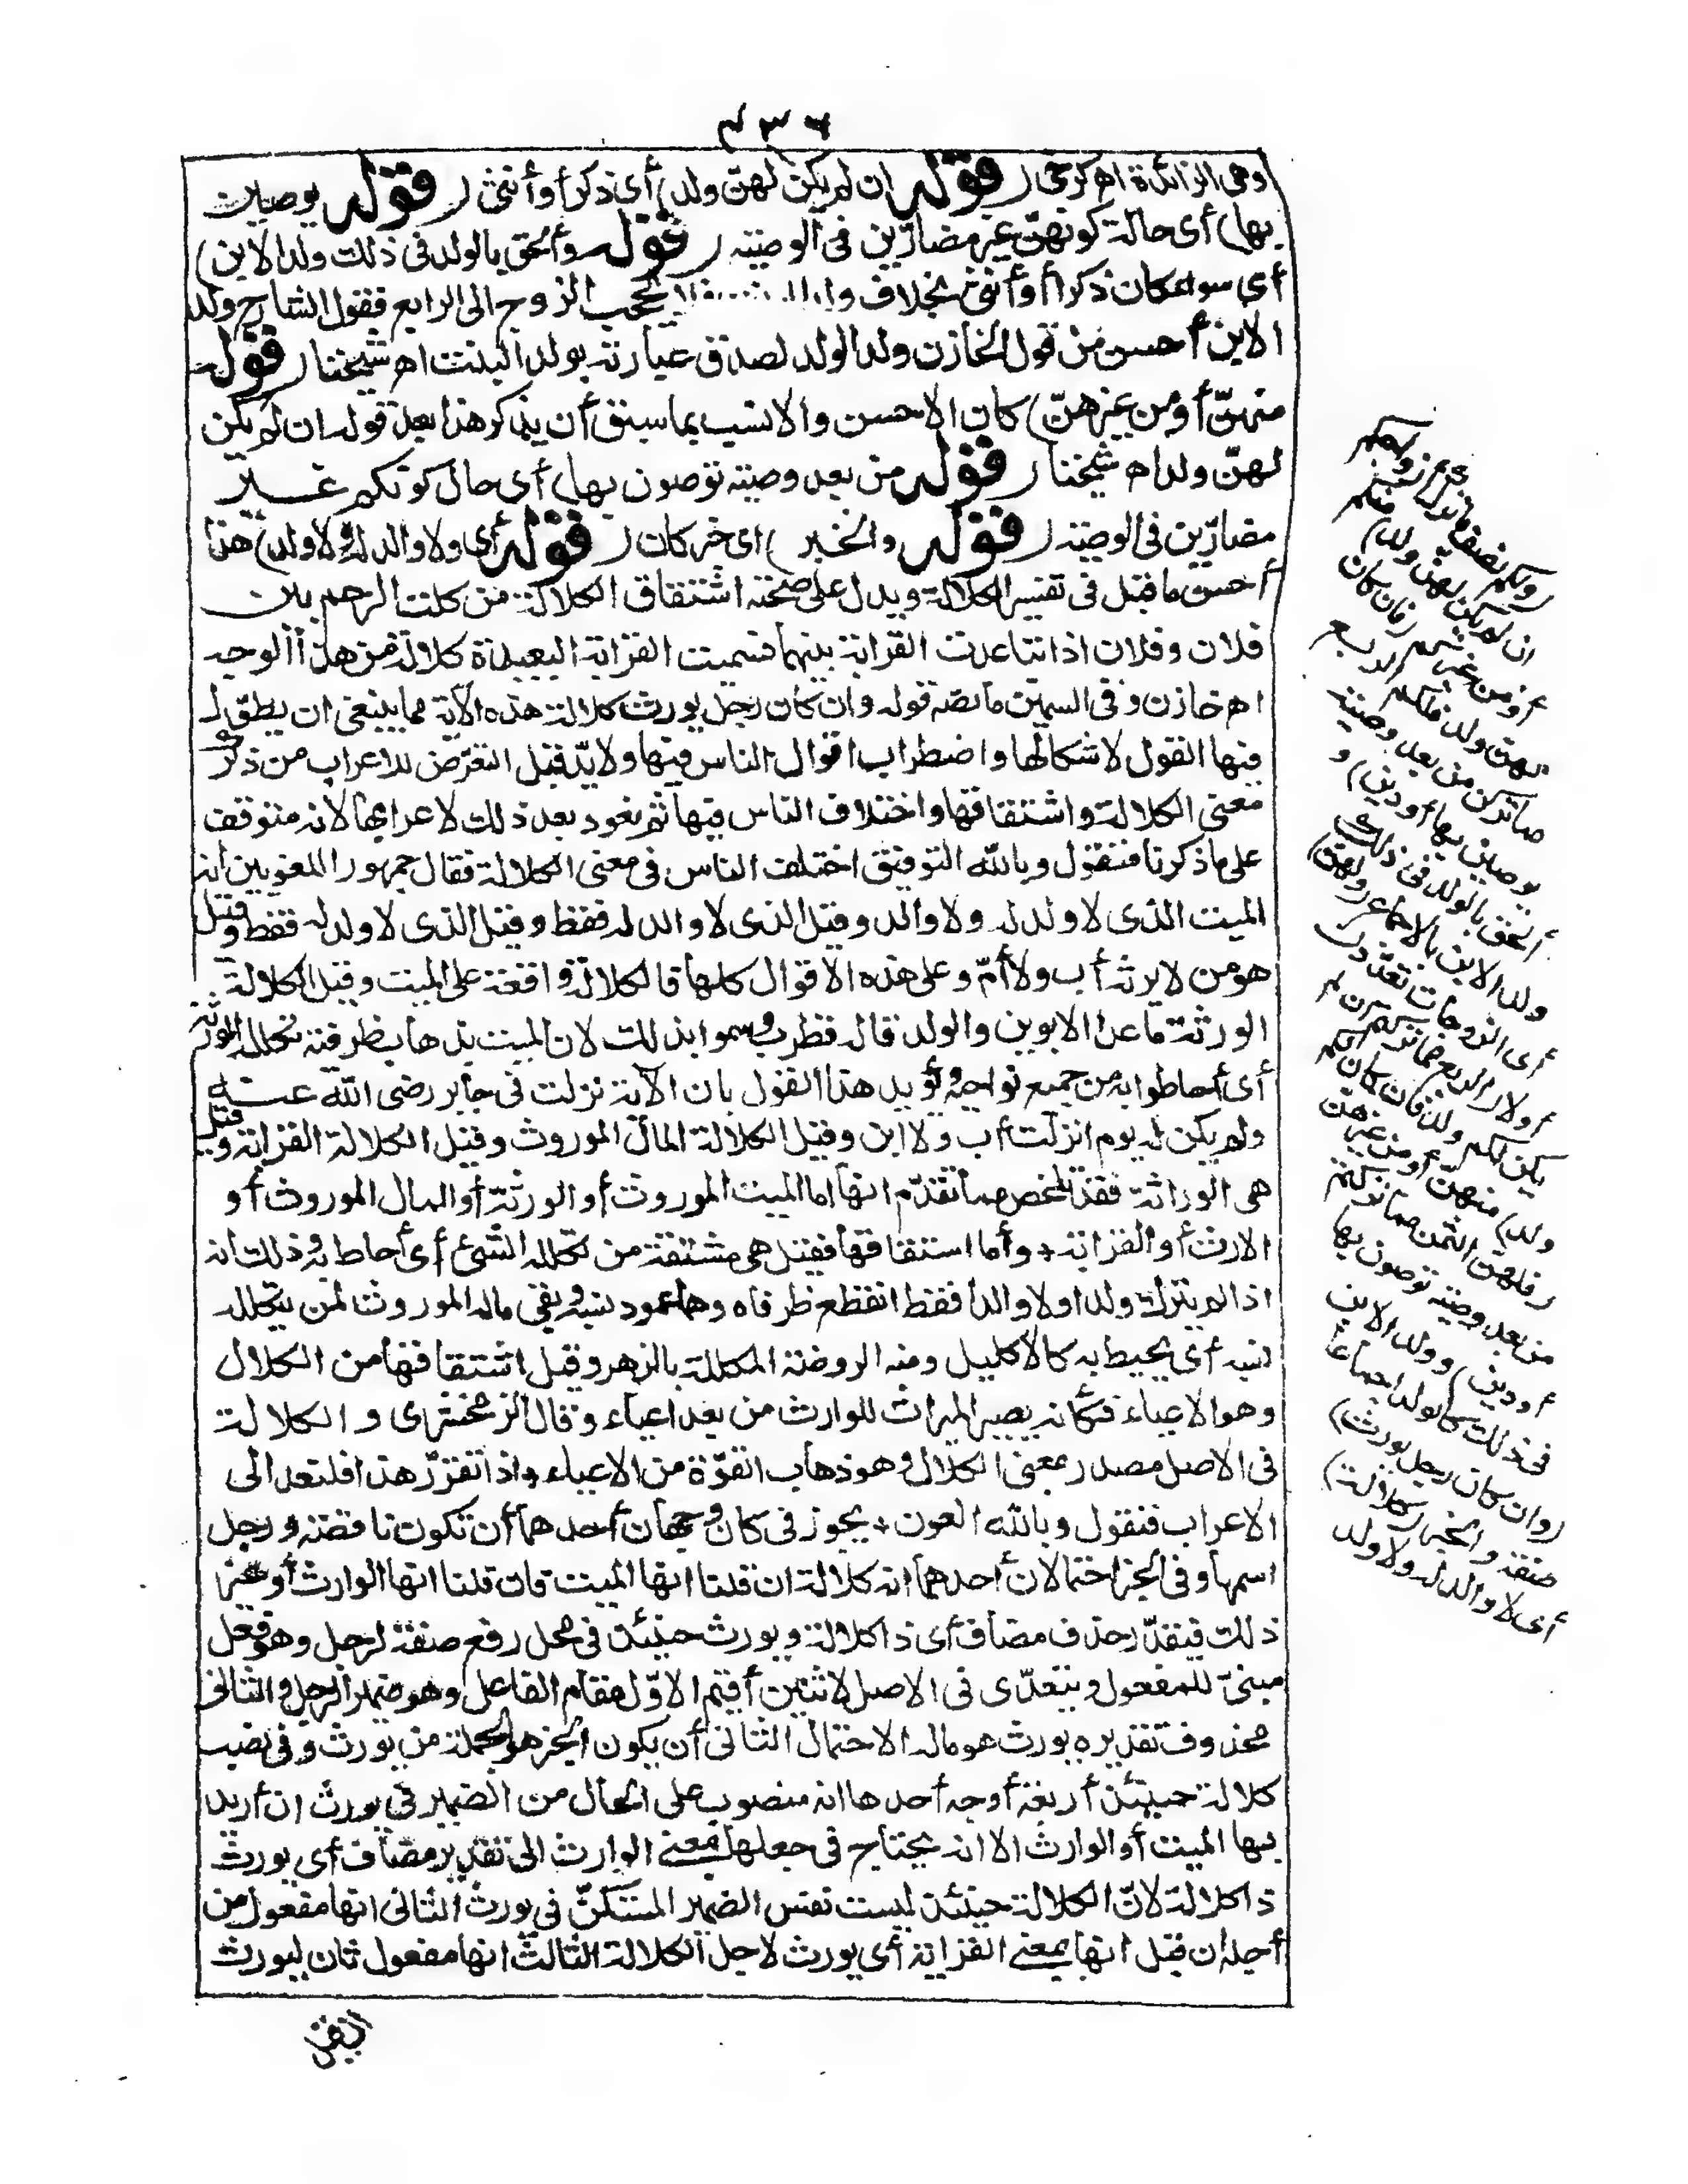 ٤٣٦
وهى الزائدة اه كرخى (قوله ان لم يكن لهنّ ولد) أى ذكرا أو أنثى (قوله يوصين
بها) أى حالة كونهنّ غير مضارّين فى الوصية (قوله وألحق بالولد فى ذلك ولد الابن)
أى سواء كان ذكرا أو أنثى بخلاف يحجب الزوج الى الرابع فقول الشارح ولد
الابن أحسن من قول الخازن ولد الولد لصدق عبارته بولد البنت اه شيخنا (قوله
منهنّ أو من غيرهنّ) كان الاحسن والانسب بما سبق أن يذكر هذا بعد قوله ان لم يكن
لهنّ ولد اه شيخنا (قوله من بعد وصية توصون بها) أى حال كونكم غير
مضارّين فى الوصية (قوله والخبر) اى خبر كان (قوله أى ولا والد له ولا ولد) هذا
أحسن ما قيل فى تفسير الكلالة ويدل على صحته اشتقاق الكلالة من كلت الرحم بين
فلان وفلان اذا تباعدت القرابة بينهما فسميت القرابة البعيدة كلالة من هذا الوجه
اه خازن وفى السمين ما نصه قوله وان كان رجل يورث كلالة هذه الآية مما ينبغى ان يطوّل
فيها القول لاشكالها واضطراب اقوال الناس فيها ولا بدّ قبل التعرّض للاعراب من ذكر
معنى الكلالة واشتقاقها واختلاف الناس فيها ثم نعود بعد ذلك لاعرابها لانه متوقف
على ما ذكرنا فنقول وبالله التوفيق اختلف الناس فى معنى الكلالة فقال جمهور اللغويين انه
الميت الذى لا ولد له ولا والد وقيل الذى لا والد له فقط وقيل الذى لا ولد له فقط وقيل
هو من لا يرثه أب ولا أمّ وعلى هذه الاقوال كلها فالكلالة واقعة على الميت وقيل الكلالة
الورثة ما عدا الابوين والولد قاله قطرب وسموا بذلك لان الميت بذهاب طرفيه تكلله الورثة
أى أحاطوا به من جميع نواحيه ويؤيد هذا القول بان الآية نزلت فى جابر رضى الله عنه
ولم يكن له يوم انزلت أب ولا ابن وقيل الكلالة المال الموروث وقيل الكلالة القرابة وقيل
هى الوراثة فقد تلخص مما تقدّم انها اما الميت الموروث أو الورثة أو المال الموروث أو
الارث أو القرابة وأما اشتقاقها فقيل هى مشتقة من تكلله الشئ أى أحاط به وذلك انه
اذا لم يترك ولدا ولا والدا فقط انقطع طرفاه وهما عمود نسبه وبقى ماله الموروث لمن يتكلله
نسبه أى يحيط به كالاكليل ومنه الروضة المكللة بالزهر وقيل اشتقاقها من الكلال
وهو الاعياء فكأنه يصير الميراث للوارث من بعد اعياء وقال الزمخشرى والكلالة
فى الاصل مصدر بمعنى الكلال وهو ذهاب القوّة من الاعياء واذا تقرّر هذا فلنعد الى
الاعراب فنقول وبالله العون يجوز فى كان وجهان أحدهما أن تكون ناقصة ورجل
اسمها وفى الخبر احتمالان أحدهما انه كلالة ان قلنا انها الميت فان قلنا انها الوارث أو غير
ذلك فيقدّر حذف مضاف أى ذا كلالة ويورث حينئذ فى محل رفع صفة لرجل وهو فعل
مبنىّ للمفعول ويتعدّى فى الاصل لاثنين أقيم الاوّل مقام الفاعل وهو ضمير الرجل والثانى
محذوف تقديره يورث هو ماله الاحتمال الثانى أن يكون الخبر هو الجملة من يورث وفى نصب
كلالة حينئذ أربعة أوجه أحدها انه منصوب على الحال من الضمير فى يورث ان أريد
بها الميت أو الوارث الا انه يحتاج فى جعلها بمعنى الوارث الى تقدير مضاف أى يورث
ذا كلالة لانّ الكلالة حينئذ ليست نفس الضمير المستكنّ فى يورث الثانى انها مفعول من
أجله ان قيل انها بمعنى القرابة أى يورث لاجل الكلالة الثالث انها مفعول ثان ليورث
(ولكم نصف ما ترك أزواجكم
ان لم يكن لهنّ ولد) منكم
أو من غيركم (فان كان
لهنّ ولد فلكم الربع
مما تركن من بعد وصية
يوصين بها أو دين) و
ألحق بالولد فى ذلك
ولد الابن بالاجماع (ولهنّ)
أى الزوجات تعدّدن
أولا (الربع مما تركتم ان لم
يكن لكم ولد فان كان لكم
ولد) منهنّ أو من غيرهنّ
(فلهنّ الثمن مما تركتم
من بعد وصية توصون بها
أو دين) وولد الابن
فى ذلك كالولد اجماعا
(وان كان رجل يورث)
صفة والخبر (كلالة)
أى لا والد له ولا ولد